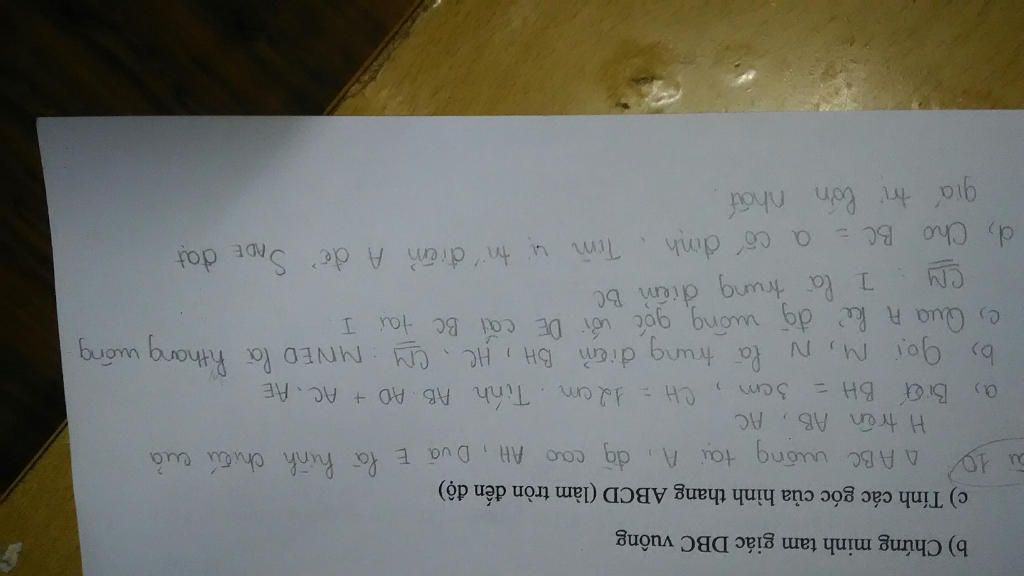 b) Chứng minh tam giác DBC vuông
c) Tính các góc của hình thang ABCD (làm tròn đến độ)
10 Δ ABC vuông tại A, đg cao AH, D và E là hình chiếu của
H trên AB, AC
a, Biết BH = 3cm, CH = 12cm. Tính AB.AD + AC.AE
b, Gọi M, N là trung điểm BH, HC. CM : MNED là hthang vuông
c, Qua A kẻ đg vuông góc với DE cắt BC tại I
CM : I là trung điểm BC
d, Cho BC = a cố định. Tìm vị trí điểm A để S ADE đạt
giá trị lớn nhất.